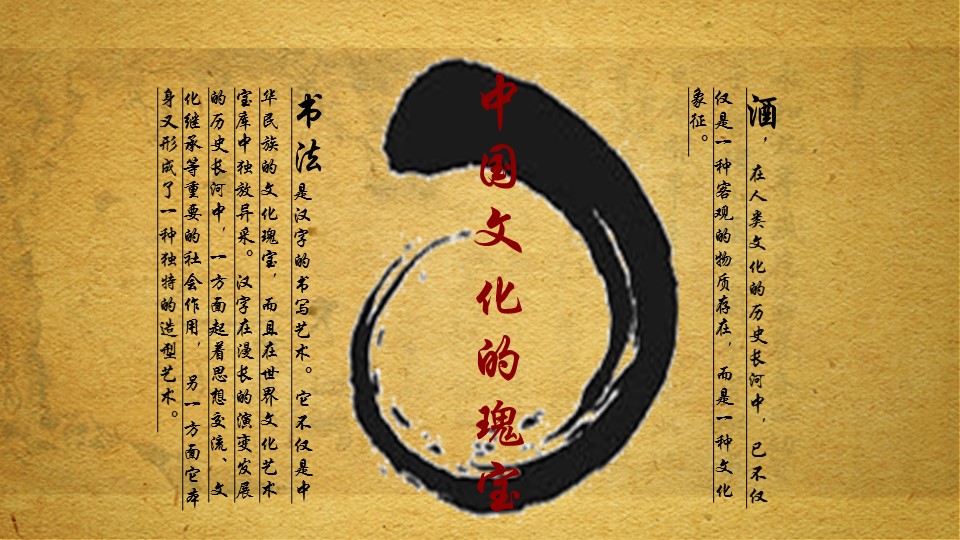 酒，在人类文化的历史长河中，已不仅
仅是一种客观的物质存在，而是一种文化
象征。
中国文化的瑰宝
书法是汉字的书写艺术。它不仅是中
华民族的文化瑰宝，而且在世界文化艺术
宝库中独放异采。汉字在漫长的演变发展
的历史长河中，一方面起着思想交流、文
化继承等重要的社会作用，另一方面它本
身又形成了一种独特的造型艺术。